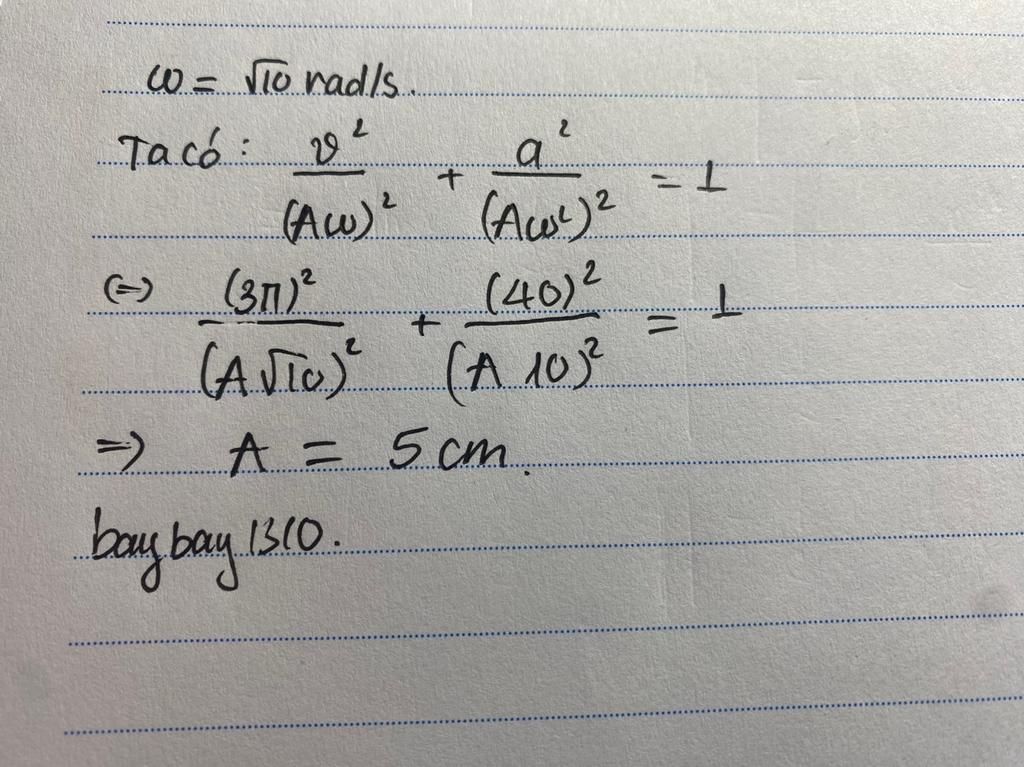 ω = √10 rad/s.
Ta có: v²/(Aω)² + a²/(Aω²)² = 1
(=) (3π)²/(A√10)² + (40)²/(A 10)² = 1
=> A = 5 cm.
baybay1310.